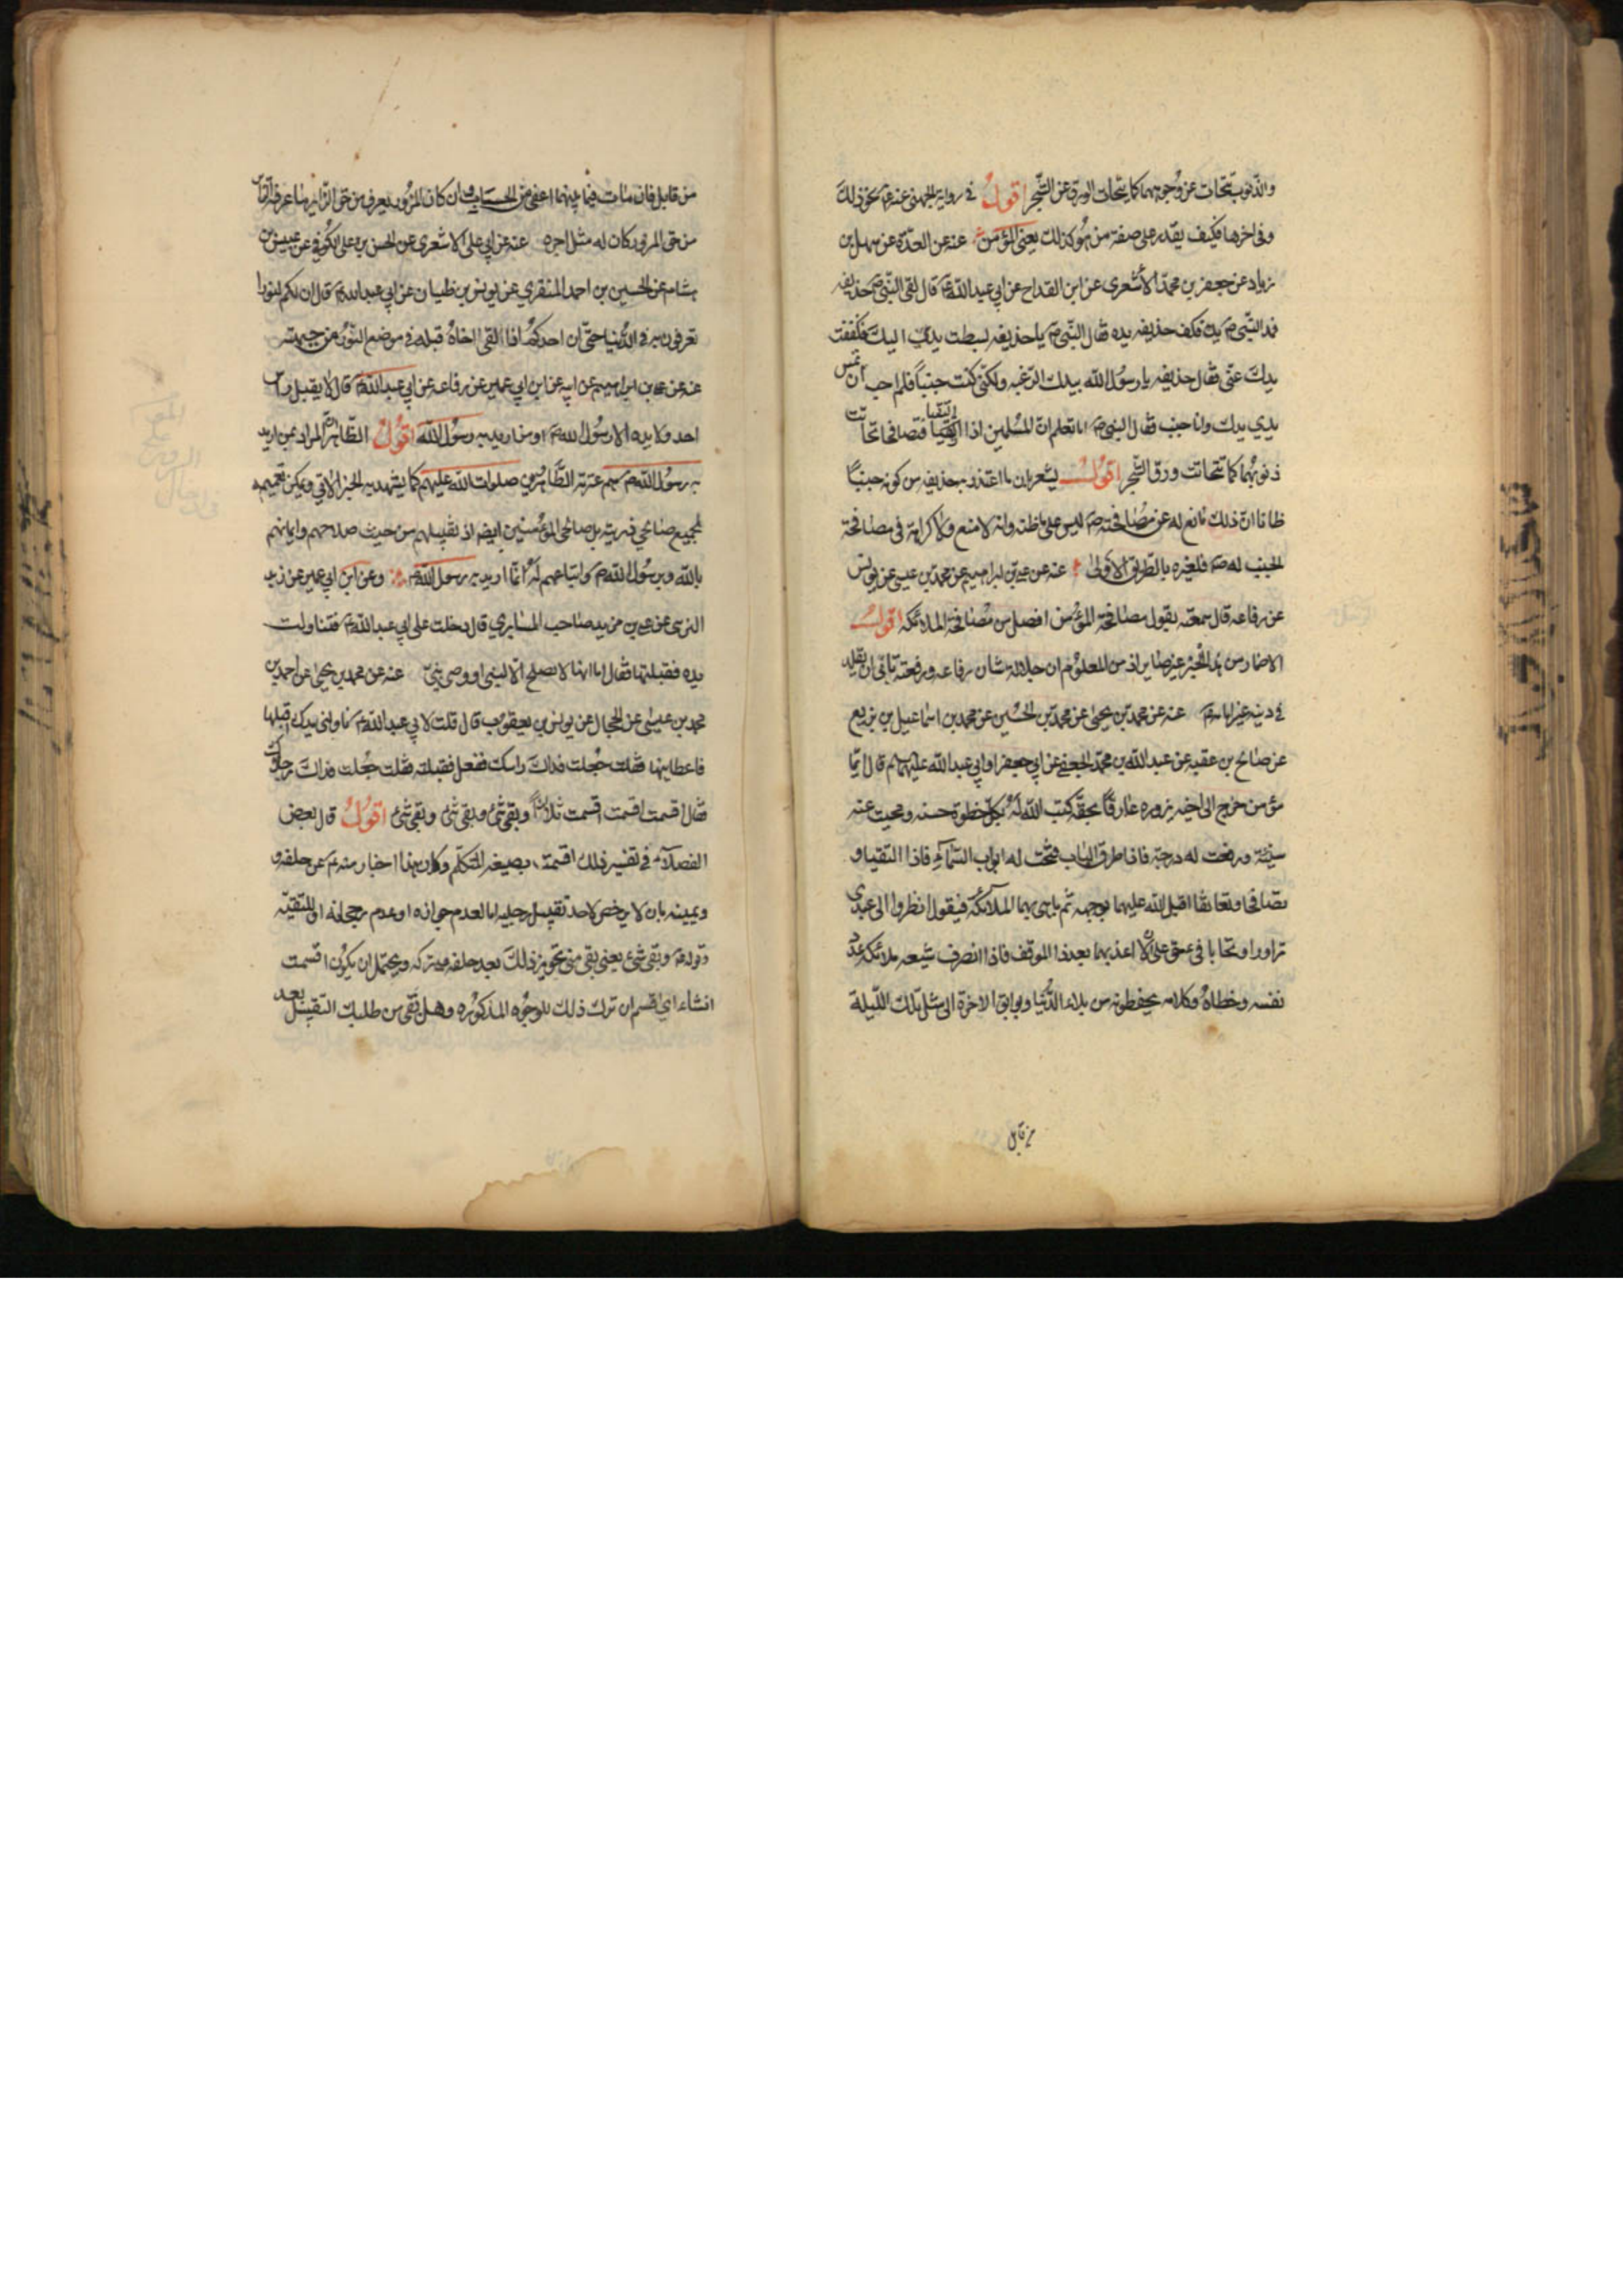 والذنوب تتحات عن وجوههما كما يتحات الورق عن الشجر اقول في رواية الجهني عنه ع نحو ذلك
وفي اخرها فكيف يقدر على صفة من هو كذلك يعني المؤمن عنه عن العدة عن سهل بن
زياد عن جعفر بن محمد الأشعري عن ابن القداح عن ابي عبد الله ع قال لقى النبي ص حذيفه
فمد النبي ص يده فكف حذيفه يده فقال النبي ص يا حذيفه بسطت يدي اليك فكففت
يدك عني فقال حذيفه يا رسول الله بيدك الرغبه ولكني كنت جنباً فلم احب ان تمس
يدي يدك وانا جنب فقال النبي ص اما تعلم ان المسلمين اذا التقيا فتصافحا تحاتت
ذنوبهما كما تتحات ورق الشجر اقول يشعر بان ما اعتذر به حذيفه من كونه جنبًا
ظانا ان ذلك مانع له عن مصافحته ص ليس على ما ظنه وانه لا منع ولا كراهة في مصافحة
الجنب له ص فلغيره بالطريق الأولى عنه عن علي بن ابراهيم عن محمد بن عيسى عن يونس
عن رفاعه قال سمعته يقول مصافحة المؤمن افضل من مصافحة الملائكه اقول
الاضمار من هذا الخبر غير ضاير اذ من المعلوم ان جلالة شان رفاعه ورفعته تابى ان يقلد
في دينه غير امامه ع عنه عن محمد بن يحيى عن محمد بن الحسين عن محمد بن اسماعيل بن بزيع
عن صالح بن عقبه عن عبد الله بن محمد الجعفي عن ابي جعفر او ابي عبد الله عليهما السلم قال ايما
مؤمن خرج الى اخيه يزوره عارفاً بحقه كتب الله له بكل خطوة حسنه ومحيت عنه
سيئة ورفعت له درجة فاذا طرق الباب فتحت له ابواب السماء فاذا التقيا و
تصافحا وتعانقا اقبل الله عليهما بوجهه ثم باهى بهما الملائكه فيقول انظروا الى عبدي
تزاورا وتحابا في حق علي الا اعذبهما بعد هذا الموقف فاذا انصرف شيعه ملائكه عدد
نفسه وخطاه وكلامه يحفظونه من بلاء الدنيا وبوايق الاخرة الى مثل تلك الليلة
من قابل
من قابل فان مات فيما بينهما اعفي من الحساب وان كان المزور يعرف من حق الزاير ما عرفه الزاير
من حق المزور كان له مثل اجره عنه عن ابي علي الاشعري عن الحسن بن علي الكوفي عن عبيس بن
هشام عن الحسين بن احمد المنقري عن يونس بن ظبيان عن ابي عبد الله ع قال ان لكم لنورا
تعرفون به في الدنيا حتى ان احدكم اذا لقى اخاه قبله في موضع النور من جبهته
عنه عن علي بن ابراهيم عن ابيه عن ابن ابي عمير عن رفاعه عن ابي عبد الله ع قال لا يقبل راس
احد ولا يده الا رسول الله ص او من اريد به رسول الله اقول الظاهر ان المراد بمن اريد
به رسول الله ص هم عترته الطاهرين صلوات الله عليهم كما يشهد به الخبر الاتي ويمكن تعميمه
لجميع صالحي ذريته بل صالحي المؤمنين ايضا اذ تقبيلهم من حيث صلاحهم وايمانهم
بالله وبرسول الله ص واتباعهم له انما اريد به رسول الله ص وعن ابن ابي عمير عن زيد
النرسي عن علي بن مزيد صاحب السابري قال دخلت على ابي عبد الله ع فتناولت
يده فقبلتها فقال اما انها لا تصلح الا لنبي او وصي نبي عنه عن محمد بن يحيى عن احمد بن
محمد بن عيسى عن الحجال عن يونس بن يعقوب قال قلت لابي عبد الله ع ناولني يدك اقبلها
فاعطانيها فقلت جعلت فداك راسك ففعل فقبلته فقلت جعلت فداك رجلاك
فقال اقسمت اقسمت اقسمت ثلاثاً وبقي شئ وبقي شئ وبقي شئ اقول قال بعض
الفضلاء في تفسير ذلك اقسمت بصيغه المتكلم وكان هذا اخبار منه ع عن حلفه و
ويمينه بان لا يرخص لاحد تقبيل رجليه اما لعدم جوازه او عدم رجحانه او للتقيه
وقوله ع وبقي شئ يعني بقي مني تجويز ذلك بعد حلفه بتركه ويحتمل ان يكون اقسمت
انشاء اي اقسم ان ترك ذلك للوجوه المذكوره وهل بقي من طلبك التقبيل بعد